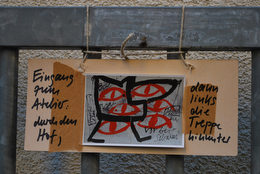 Eingang
zum
Atelier:
durch den
Hof,
dann
links
die
Treppe
hinunter